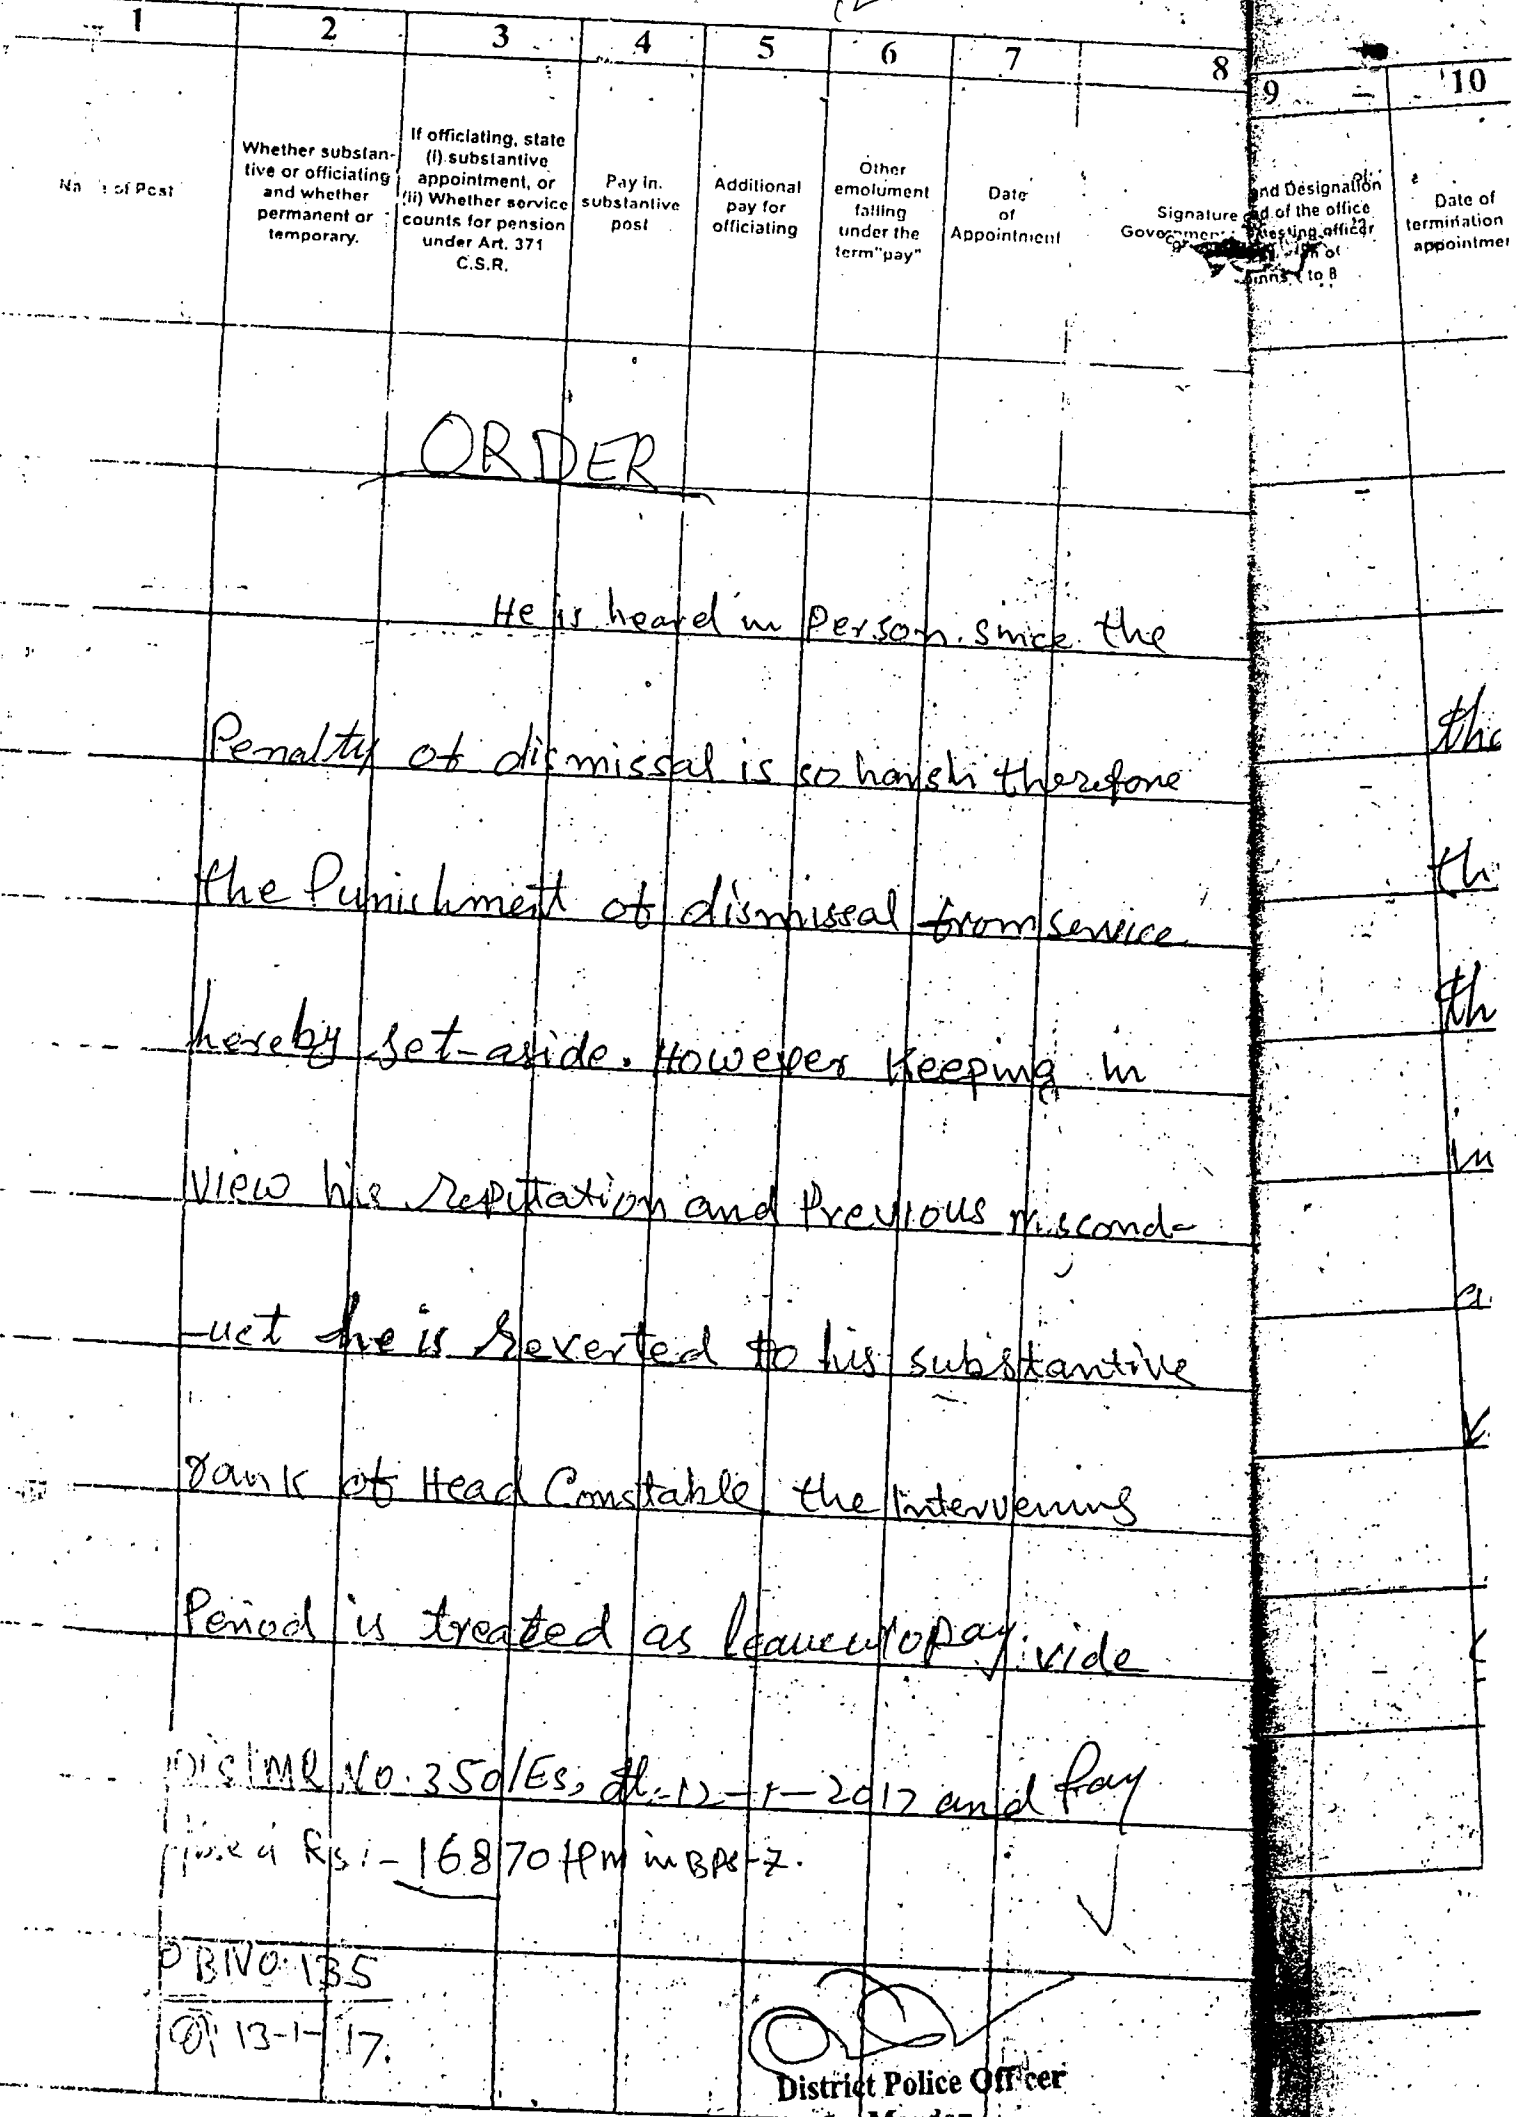 1 2 3 4 5 6 7 8 9 10
of Post
Whether substan-
tive or officiating
and whether
permanent or
temporary.
If officiating, state
(i) substantive
appointment, or
(ii) Whether service
counts for pension
under Art. 371
C.S.R.
Pay in
substantive
post
Additional
pay for
officiating
Other
emolument
falling
under the
term"pay"
Date
of
Appointment
Signature
Government
and Designation
of the office
officer
of
to 8
Date of
termination
ORDER
He is heard in Person. Since the
Penalty of dismissal is so harsh therefore
the Punishment of dismissal from service
hereby set-aside. However Keeping in
view his reputation and Previous miscond-
-uct he is reverted to his substantive
rank of Head Constable the intervening
Period is treated as leave w/o pay. vide
No. 350/Es, dt:-12-1-2017 and Pay
Rs:- 16870/-PM in BPS-7.
OB No. 135
Dt 13-1-17.
District Police Officer